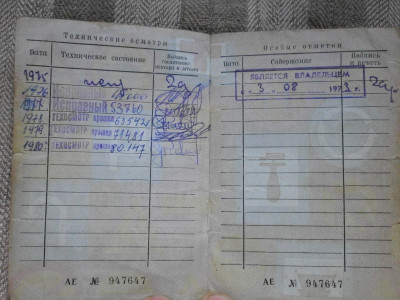 Технические осмотры
Дата
Техническое состояние
Подпись
госавтоинспектора и печать
1975
1976 Исправный
1977 Исправный 53760
1978 ТЕХОСМОТР прошел 63542
1979 ТЕХОСМОТР прошел 71481
1980 ТЕХОСМОТР прошел 80147
АЕ № 947647
Особые отметки
Дата
Содержание
Подпись
и печать
ЯВЛЯЕТСЯ ВЛАДЕЛЬЦЕМ
"3" 08 1973 г.
АЕ № 947647